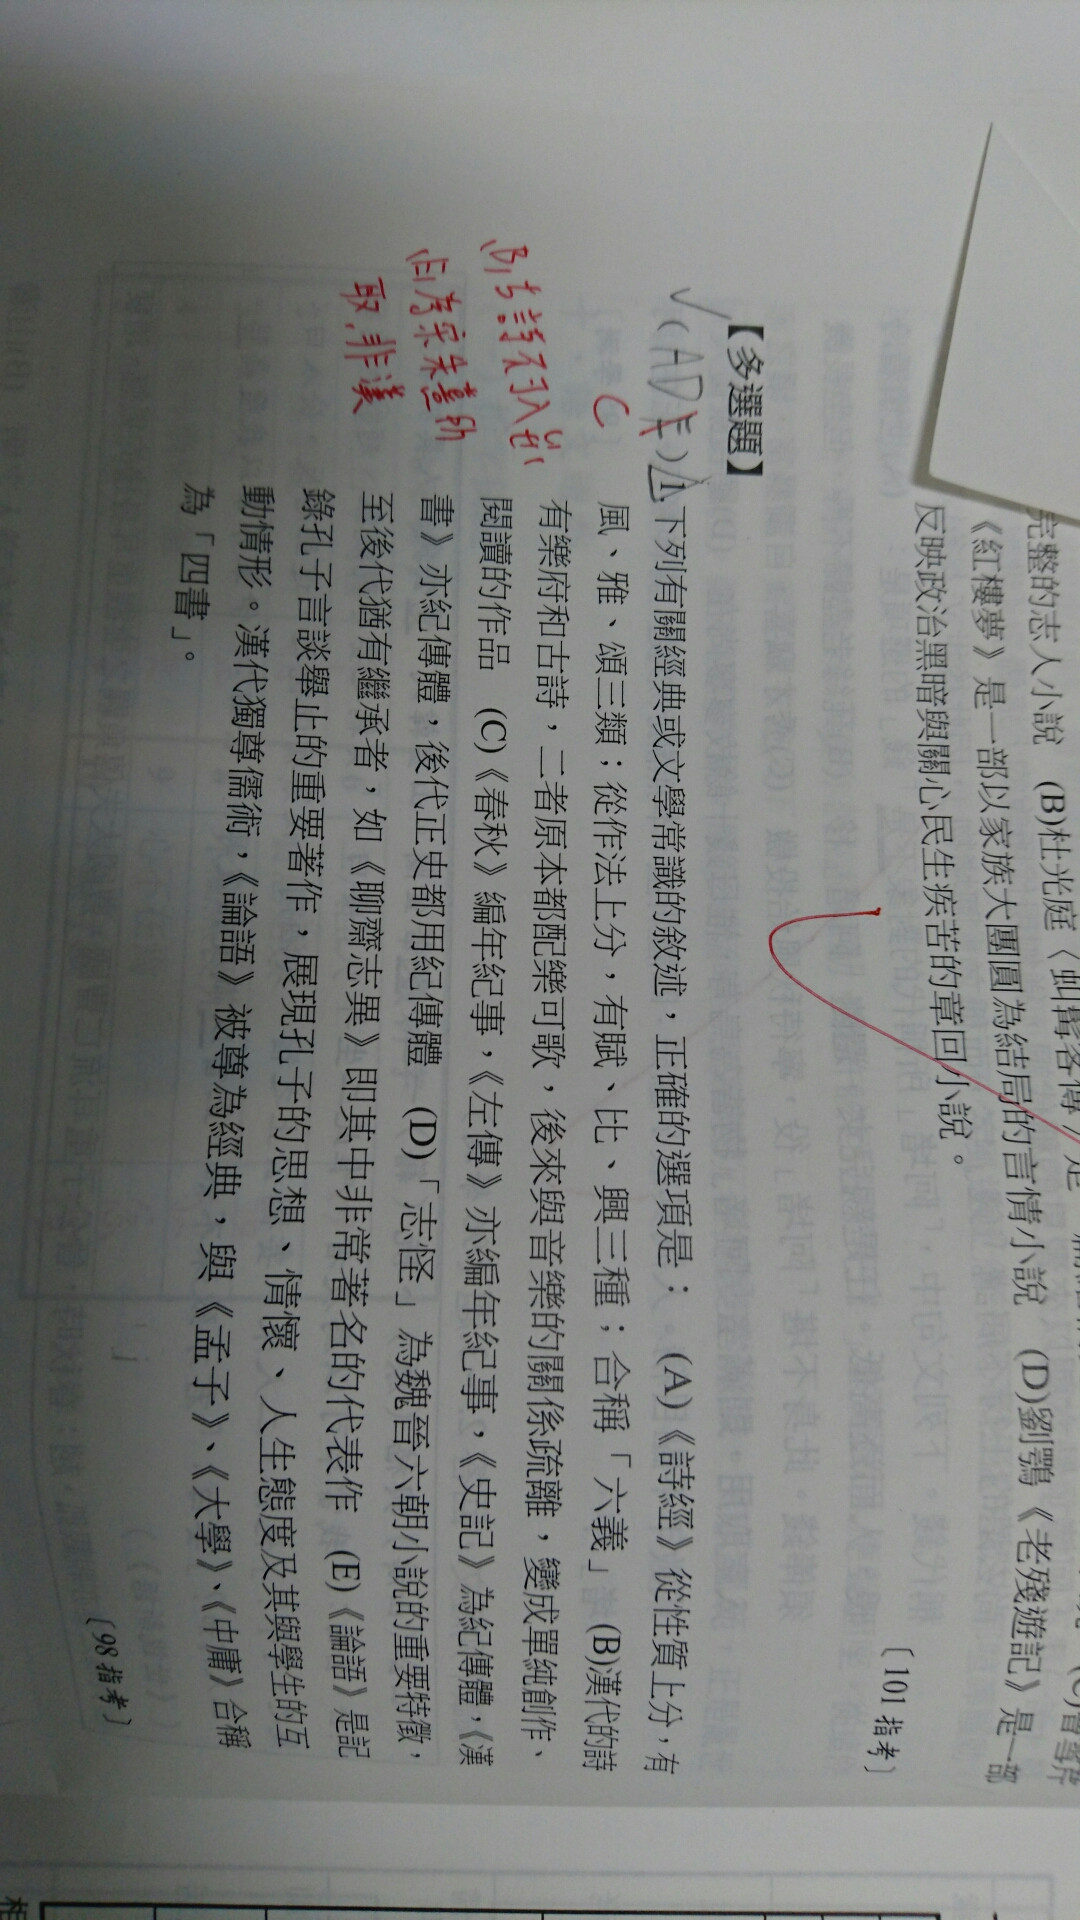 完整的志人小說　(B)杜光庭〈虯髯客傳〉是
《紅樓夢》是一部以家族大團圓為結局的言情小說　(D)劉鶚《老殘遊記》是一部
反映政治黑暗與關心民生疾苦的章回小說。
〔101 指考〕
【多選題】
(ADE) C 1.下列有關經典或文學常識的敘述，正確的選項是：　(A)《詩經》從性質上分，有
風、雅、頌三類；從作法上分，有賦、比、興三種；合稱「六義」　(B)漢代的詩
有樂府和古詩，二者原本都配樂可歌，後來與音樂的關係疏離，變成單純創作、
閱讀的作品　(C)《春秋》編年紀事，《左傳》亦編年紀事，《史記》為紀傳體，《漢
書》亦紀傳體，後代正史都用紀傳體　(D)「志怪」為魏晉六朝小說的重要特徵，
至後代猶有繼承者，如《聊齋志異》即其中非常著名的代表作　(E)《論語》是記
錄孔子言談舉止的重要著作，展現孔子的思想、情懷、人生態度及其與學生的互
動情形。漢代獨尊儒術，《論語》被尊為經典，與《孟子》、《大學》、《中庸》合稱
為「四書」。
〔98 指考〕
(B)古詩不可入樂
(E)為宋朱熹所
取，非漢